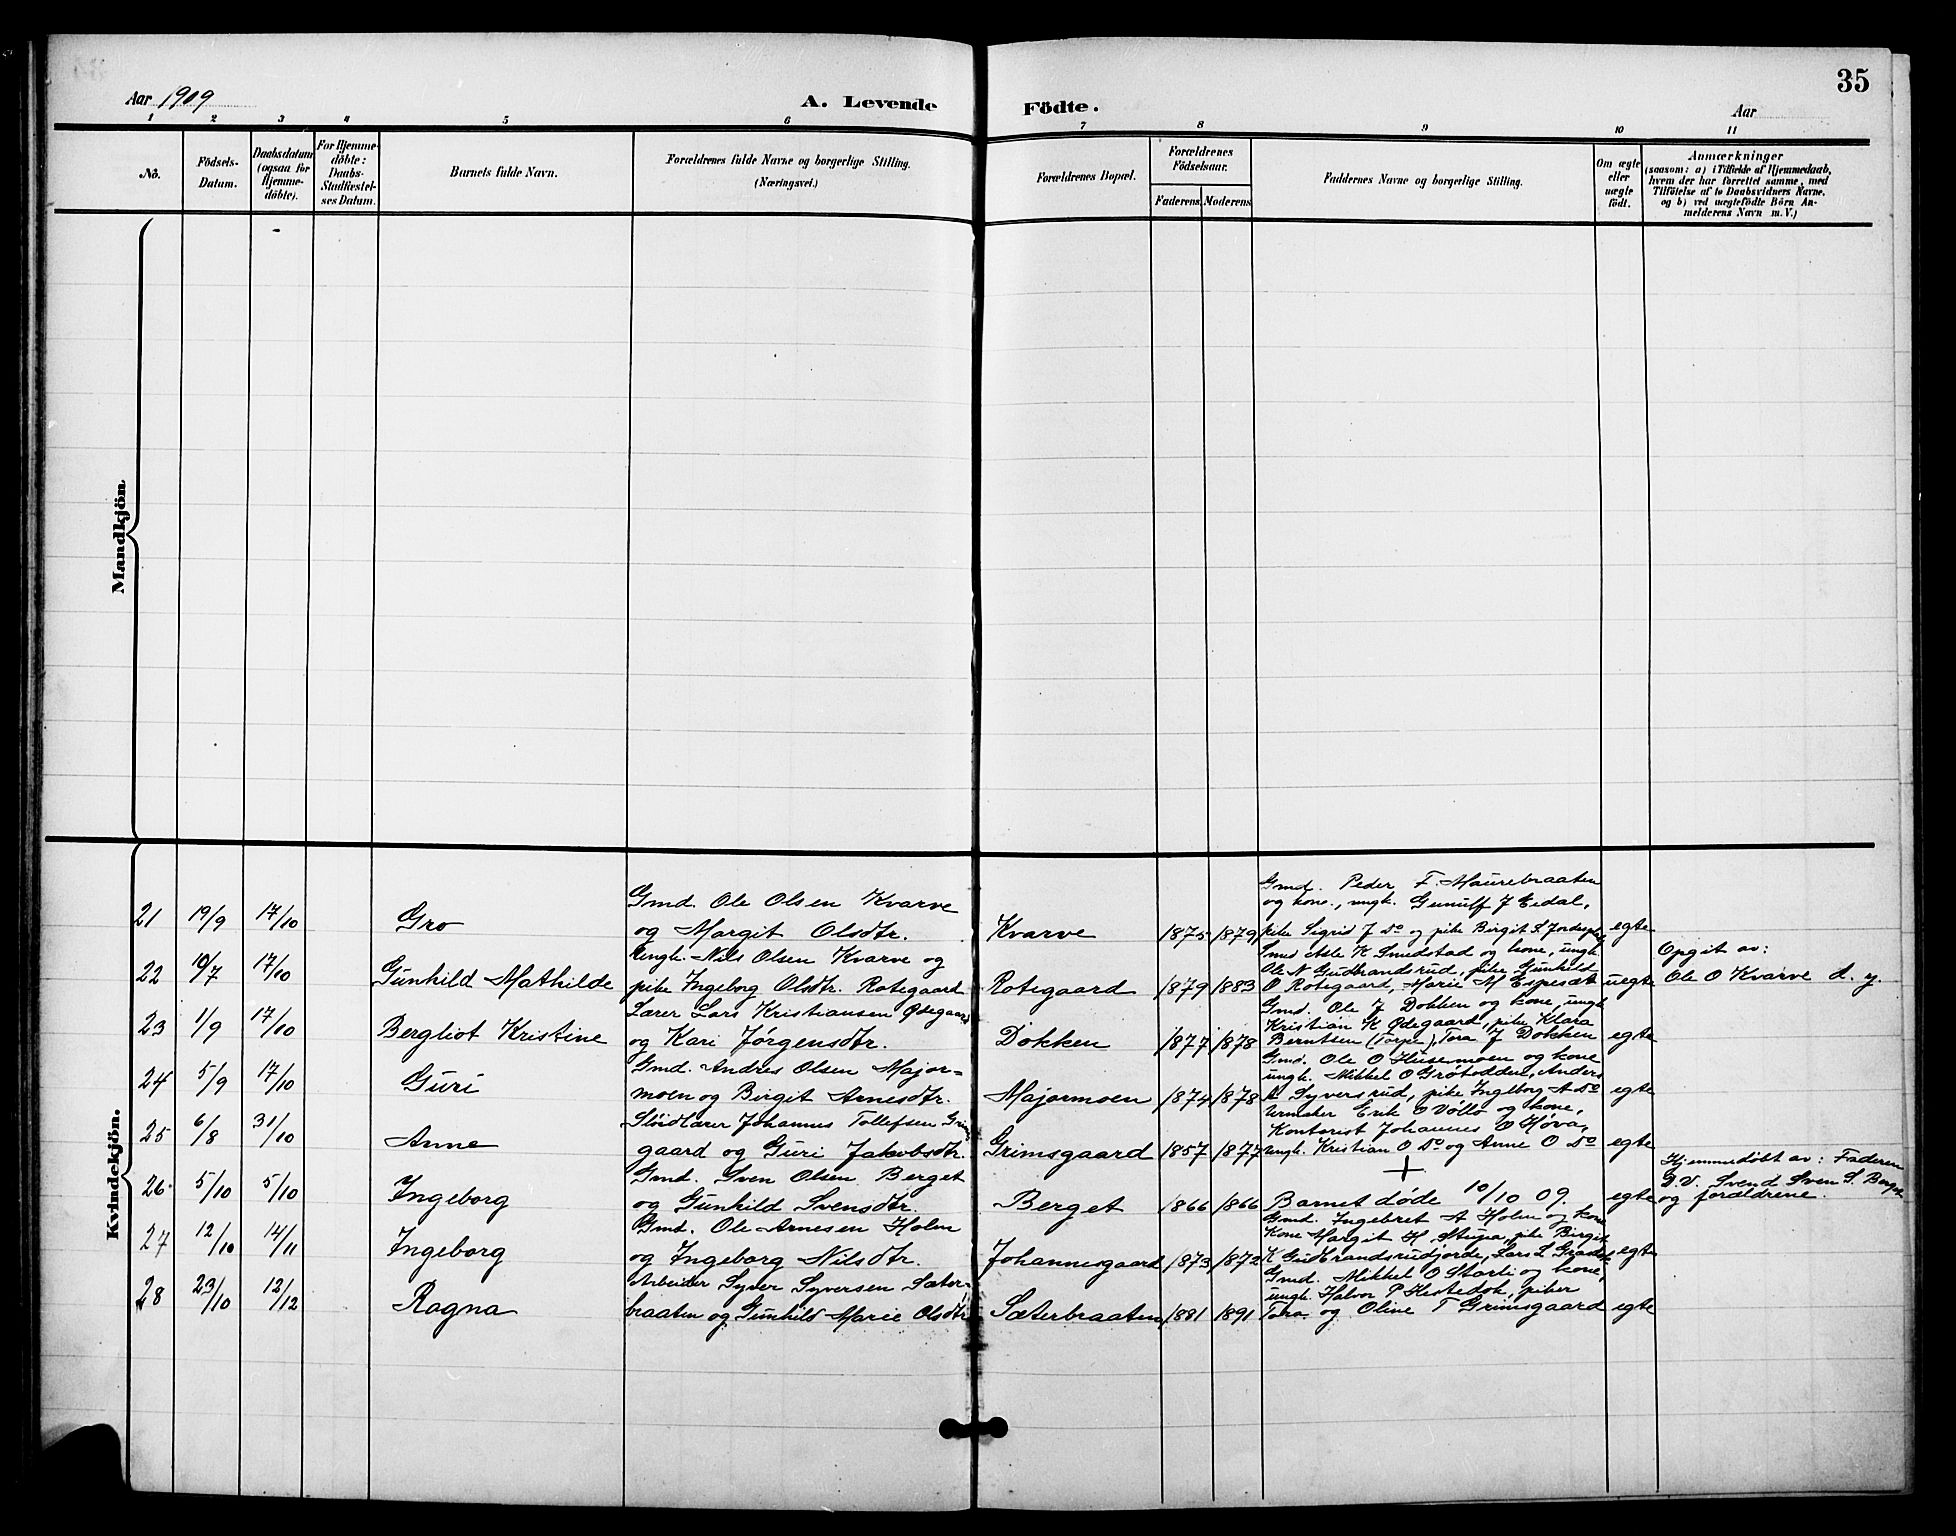 35
Aar 1909
A. Levende Födte.
Aar
1 2 3 4 5 6 7 8 9 10 11
Nö.
Födsels-Datum.
Daabsdatum (ogsaa for Hjemme-döbte).
For Hjemme-döbte: Daabs-Stadfæstel-ses Datum.
Barnets fulde Navn.
Forældrenes fulde Navne og borgerlige Stilling. (Næringsvei.)
Forældrenes Bopæl.
Forældrenes Födselsaar.
Faderens. Moderens
Faddernes Navne og borgerlige Stilling.
Om ægte eller uægte födt.
Anmærkninger
(saasom: a) i Tilfælde af Hjemmedaab,
hvem der har forrettet samme, med
Tilföielse af to Daabsvidners Navne,
og b) ved uægtefödte Börn An-
melderens Navn m. V.)
Mandkjön.
Kvindekjön.
21 19/9 17/10 Gro
Gmd. Ole Olsen Kvarve
og Margit Olsdtr.
Kvarve 1875 1879
Gmd. Peder F. Maurebraaten
og kone, ungk. Gunulf J Eidal,
pike Sigrid J Do og pike Birgit S
egte
22 10/7 17/10 Gunhild Mathilde
Ungk. Nils Olsen Kvarve og
pike Ingeborg Olsdtr. Rotegaard
Rotegaard 1879 1883
Smed Asle K Smedstad og kone, ungk.
Ole N Gudbrandsrud, pike Gunhild
O Rotegaard, Marie M Espesæt
uegte
Opgit av:
Ole O Kvarve d. y.
23 1/9 17/10 Bergliot Kristine
Lærer Lars Kristiansen Ødegaard
og Kari Jørgensdtr.
Dokken 1877 1878
Gmd. Ole J Dokken og kone, ungk
Kristian K Ødegaard, pike Klara
Berntsen (Torpe), Tora J Dokken
egte
24 5/9 17/10 Guri
Gmd. Andres Olsen Major=
moen og Birgit Arnesdtr.
Majormoen 1874 1878
Gmd. Ole O Husemoen og kone
ungk. Mikkel O Grøtodden, Anders
A Syversrud, pike Ingeborg A Do
egte
25 6/8 31/10 Anne
Sløidlærer Johannes Tollefsen Grims
gaard og Guri Jakobsdtr.
Grimsgaard 1857 1877
Urmaker Erik O Vøllo og kone,
Kontorist Johannes O Høva,
ungk. Kristian O Do og Anne O Do
egte
26 5/10 5/10 Ingeborg
Gmd. Sven Olsen Berget
og Gunhild Svensdtr.
Berget 1866 1866
+
Barnet døde 10/10 09.
egte
Hjemmedøbt av: Faderen
D.V. Svend Sven S. Berget
og forældrene.
27 12/10 14/11 Ingeborg
Gmd. Ole Arnesen Holm
og Ingeborg Nilsdtr.
Johannesgaard 1873 1872
Gmd. Ingebret A Holm og kone
Kone Margit H. pike Birgit
K Gudbrandsrudjorde, Lars L
egte
28 23/10 12/12 Ragna
Arbeider Syver Syversen Sæter=
braaten og Gunhild Marie Olsdtr
Sæterbraaten 1881 1891
Gmd. Mikkel O Starli og kone,
ungk Halvor P Hestedok, piker
Tora og Oline T Grimsgaard
egte